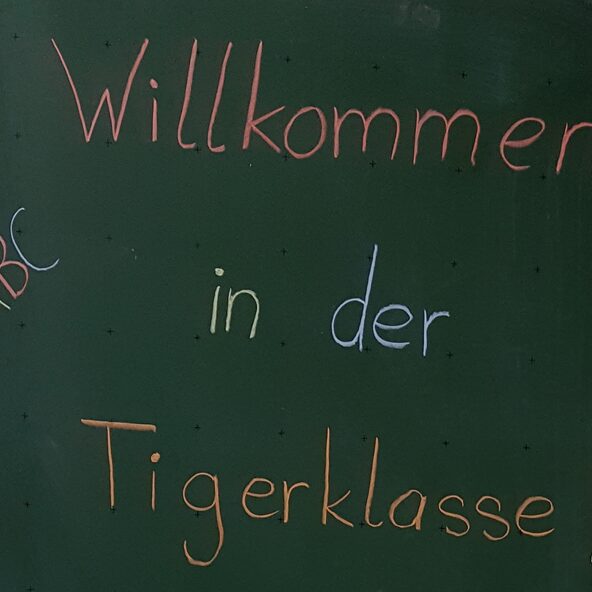 Willkommen
in der
BC
Tigerklasse